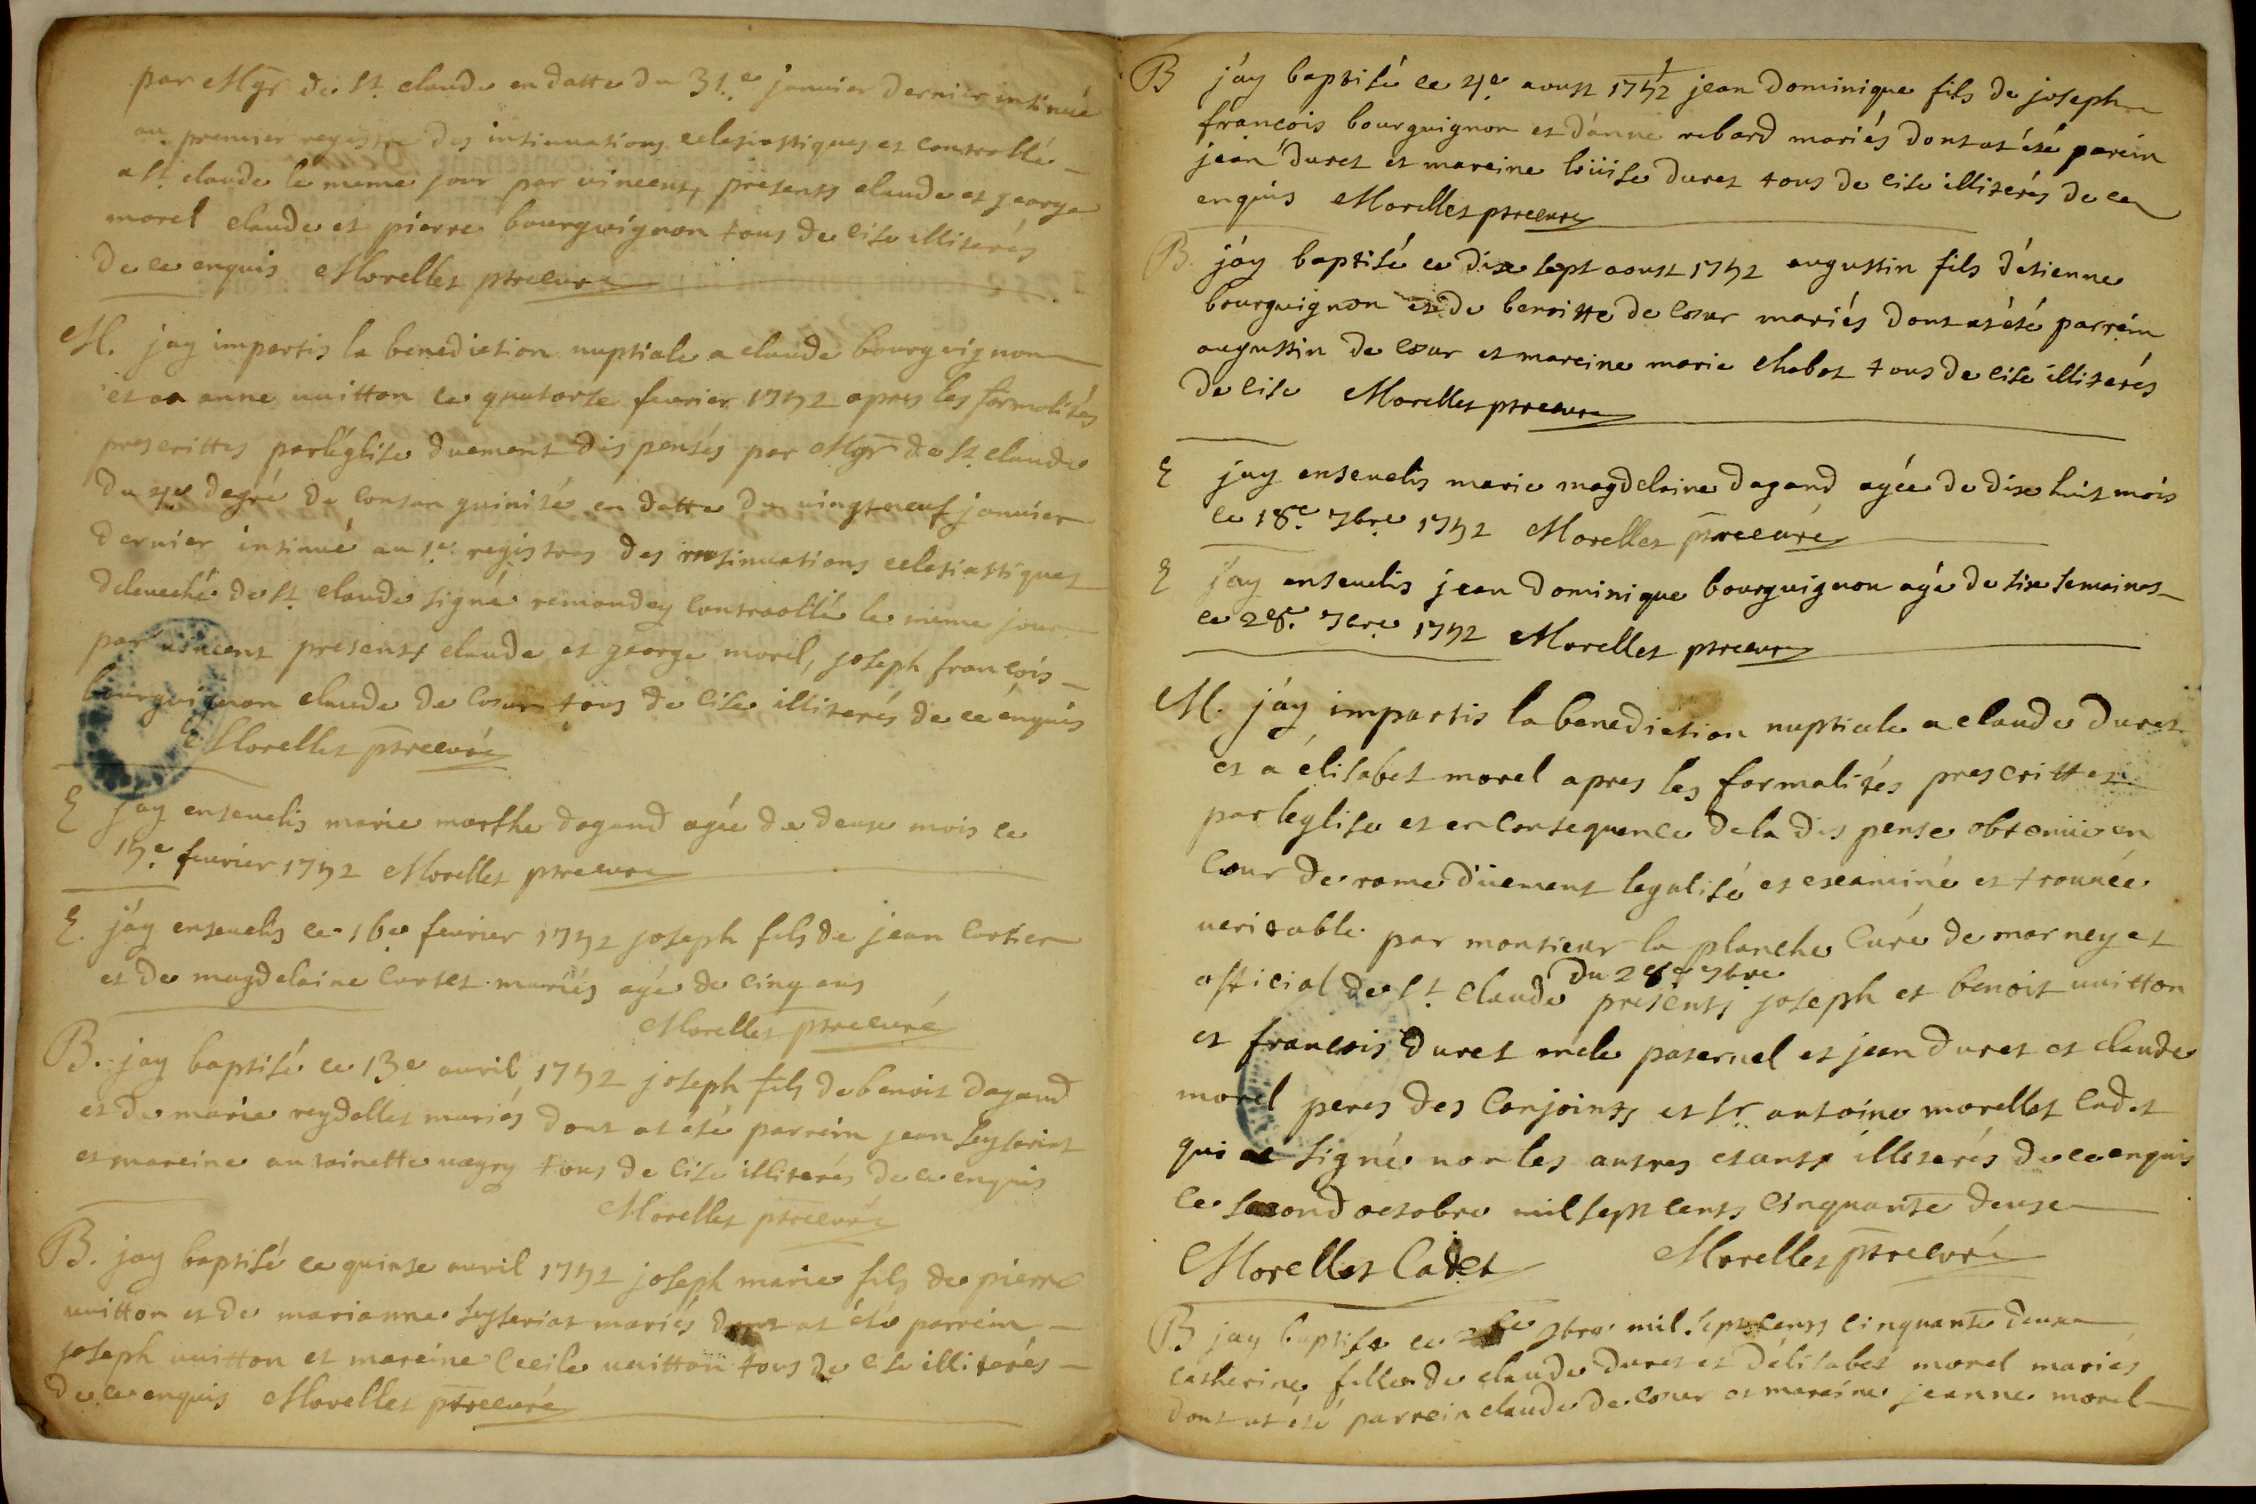 par Mgr de St. claude en datte du 31.e janvier dernier insinué
au premier registre des insinuations eclesiastiques et controllé
a St. claude le meme jour par vincent, presents claude et george
morel claude et pierre bourguignon tous de cise illiterés
de ce enquis Morellet ptre curé
M. jay impartis la benediction nuptiale a claude bourguignon
et a anne vuitton ce quatorse fevrier 1752 apres les formalités
prescrittes par l'église duement dispensés par Mgr de St. claude
du 4e degré de consanguinité en datte du vingtneuf janvier
dernier insinué au 1er. registres des insinuations eclesiastiques
de leveché de St. claude signé remondey controollé le meme jour
par vincent presents claude et george morel, joseph francois
bourguignon claude de coeur tous de cise illiterés de ce enquis
Morellet ptre curé
E jay ensevelis marie marthe dagand agée de deux mois ce
15.e fevrier 1752 Morellet ptre curé
E. jáy ensevelis ce 16e fevrier 1752 joseph fils de jean cartier
et de magdelaine cartet mariés agé de cinq ans
Morellet ptre curé
B. jay baptisé ce 13e avril 1752 joseph fils de benoit dagand
et de marie reydellet mariés dont at été parrein jean seyseriat
et mareine antoinette tous de cise illiterés de ce enquis
Morellet ptre curé
B. jay baptisé ce quinse avril 1752 joseph marie fils de pierre
vuitton et de marianne seyseriat mariés dont at été parrein
joseph vuitton et mareine cecile vuitton tous de cise illiterés
de ce enquis Morellet ptre curé
B jáy baptisé ce 4e. aoust 1752 jean dominique fils de joseph
francois bourguignon et d'anne rebard mariés dont at été parein
jean duret et mareine loüise duret tous de cise illiterés de ce
enquis Morellet ptre curé
B. jáy baptisé ce dix sept aoust 1752 augustin fils d'etienne
bourguignon et de benoitte de coeur mariés dont at été parrein
augustin de coeur et mareine marie chabot tous de cise illiterés
de cise Morellet ptre curé
E jay ensevelis marie magdelaine dagand agée de dix huit mois
ce 18.e 7bre 1752 Morellet ptre curé
E jáy ensevelis jean dominique bourguignon agé de six semaines
ce 28.e 7bre 1752 Morellet ptre curé
M. jáy impartis la benediction nuptiale a claude duret
et a élisabet morel apres les formalités prescrittes
par leglise et en consequence de la dispense obtenüe en
cour de rome düement legalisé et exeaminé et trouvée
veritable par monsieur la planche curé de marney et
official de St. claude du 28.e 7bre presents joseph et benoit vuitton
et francois duret oncle paternel et jean duret et claude
morel peres des conjoints et sr. antoine morellet cadet
qui a signé non les autres etants illiterés de ce enquis
ce second octobre mil sept cents cinquante deux
Morellet Cadet Morellet ptre curé
B jay baptisé ce 9bre mil sept cents cinquante deux
catherine fille de claude duret et d'élisabet morel mariés
dont at été parrein claude de coeur et mareine jeanne morel